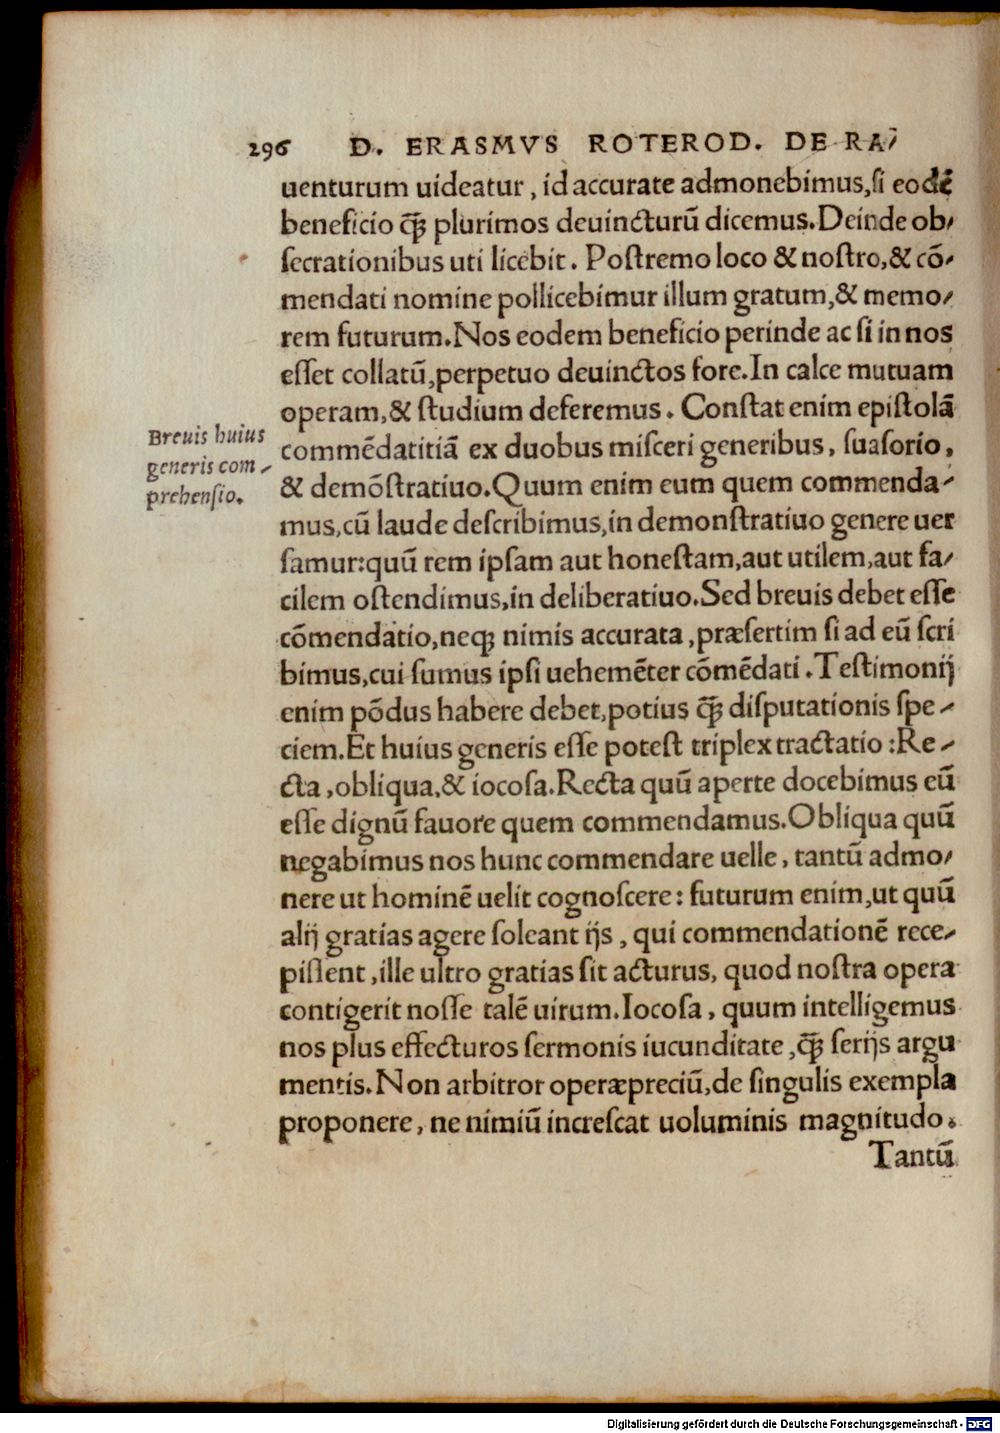 296 D. ERASMVS ROTEROD. DE RA⸗
uenturum uideatur, id accurate admonebimus, si eodē
beneficio ꝙ̄ plurimos deuincturū dicemus. Deinde ob⸗
secrationibus uti licebit. Postremo loco & nostro, & cō⸗
mendati nomine pollicebimur illum gratum, & memo⸗
rem futurum. Nos eodem beneficio perinde ac si in nos
esset collatū, perpetuo deuinctos fore. In calce mutuam
operam, & studium deferemus. Constat enim epistolā
commēdatitiā ex duobus misceri generibus, suasorio,
& demōstratiuo. Quum enim eum quem commenda⸗
mus, cū laude describimus, in demonstratiuo genere uer
samur: quū rem ipsam aut honestam, aut utilem, aut fa⸗
cilem ostendimus, in deliberatiuo. Sed breuis debet esse
cōmendatio, neqꝫ nimis accurata, præsertim si ad eū scri
bimus, cui sumus ipsi uehemēter cōmēdati. Testimonij
enim pōdus habere debet, potius ꝙ̄ disputationis spe⸗
ciem. Et huius generis esse potest triplex tractatio: Re⸗
cta, obliqua, & iocosa. Recta quū aperte docebimus eū
esse dignū fauore quem commendamus. Obliqua quū
negabimus nos hunc commendare uelle, tantū admo⸗
nere ut hominē uelit cognoscere: futurum enim, ut quū
alij gratias agere soleant ijs, qui commendationē rece⸗
pissent, ille ultro gratias sit acturus, quod nostra opera
contigerit nosse talē uirum. Iocosa, quum intelligemus
nos plus effecturos sermonis iucunditate, ꝙ̄ serijs argu
mentis. Non arbitror operæpreciū, de singulis exempla
proponere, ne nimiū increscat uoluminis magnitudo.
Tantū
Breuis huius
generis com⸗
prehensio.
Digitalisierung gefördert durch die Deutsche Forschungsgemeinschaft - DFG